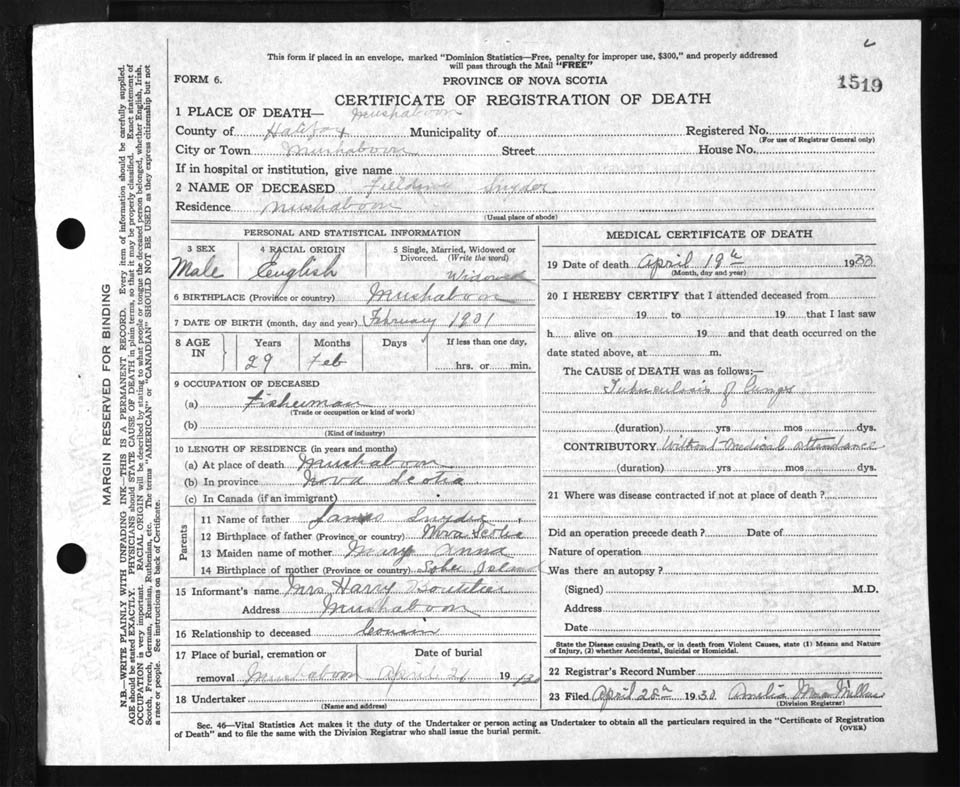 This form if placed in an envelope, marked "Dominion Statistics—Free, penalty for improper use, $300," and properly addressed
will pass through the Mail "FREE"
FORM 6.
PROVINCE OF NOVA SCOTIA
1519
CERTIFICATE OF REGISTRATION OF DEATH
1 PLACE OF DEATH— Mushaboom
County of Halifax Municipality of Registered No.
(For use of Registrar General only)
City or Town Mushaboom Street House No.
If in hospital or institution, give name
2 NAME OF DECEASED Fielding Snyder
Residence Mushaboom
(Usual place of abode)
PERSONAL AND STATISTICAL INFORMATION
3 SEX 4 RACIAL ORIGIN 5 Single, Married, Widowed or
Divorced. (Write the word)
Male English Widowed
6 BIRTHPLACE (Province or country) Mushaboom
7 DATE OF BIRTH (month, day and year) February 1901
8 AGE IN Years Months Days If less than one day,
29 Feb hrs. or min.
9 OCCUPATION OF DECEASED
(a) Fisherman
(Trade or occupation or kind of work)
(b)
(Kind of industry)
10 LENGTH OF RESIDENCE (in years and months)
(a) At place of death Mushaboom
(b) In province Nova Scotia
(c) In Canada (if an immigrant)
Parents
11 Name of father James Snyder
12 Birthplace of father (Province or country) Nova Scotia
13 Maiden name of mother Mary Anna
14 Birthplace of mother (Province or country) Island
15 Informant's name Mrs Harry
Address Mushaboom
16 Relationship to deceased Cousin
17 Place of burial, cremation or Date of burial
removal Mushaboom April 21 1930
18 Undertaker
(Name and address)
MEDICAL CERTIFICATE OF DEATH
19 Date of death April 19th 1930
(Month, day and year)
20 I HEREBY CERTIFY that I attended deceased from
19 to 19 that I last saw
h alive on 19 and that death occurred on the
date stated above, at m.
The CAUSE of DEATH was as follows:—
Tuberculosis of Lungs
(duration) yrs mos dys.
CONTRIBUTORY Without Medical Attendance
(duration) yrs mos dys.
21 Where was disease contracted if not at place of death?
Did an operation precede death? Date of
Nature of operation
Was there an autopsy?
(Signed) M.D.
Address
Date
State the Disease causing Death, or in death from Violent Causes, state (1) Means and Nature
of Injury, (2) whether Accidental, Suicidal or Homicidal.
22 Registrar's Record Number
23 Filed April 28th 1930. Amelia
(Division Registrar)
Sec. 46—Vital Statistics Act makes it the duty of the Undertaker or person acting as Undertaker to obtain all the particulars required in the "Certificate of Registration
of Death" and to file the same with the Division Registrar who shall issue the burial permit.
(OVER)
MARGIN RESERVED FOR BINDING
N.B.—WRITE PLAINLY WITH UNFADING INK—THIS IS A PERMANENT RECORD. Every item of information should be carefully supplied.
AGE should be stated EXACTLY. PHYSICIANS should STATE CAUSE OF DEATH in plain terms, so that it may be properly classified. Exact statement of
OCCUPATION is very important. RACIAL ORIGIN will be described by stating to what people or tongue the deceased person belonged, whether English, Irish,
Scotch, French, German, Russian, Ruthenian, etc. The terms "AMERICAN" or "CANADIAN" SHOULD NOT BE USED as they express citizenship but not
a race or people. See instructions on back of Certificate.